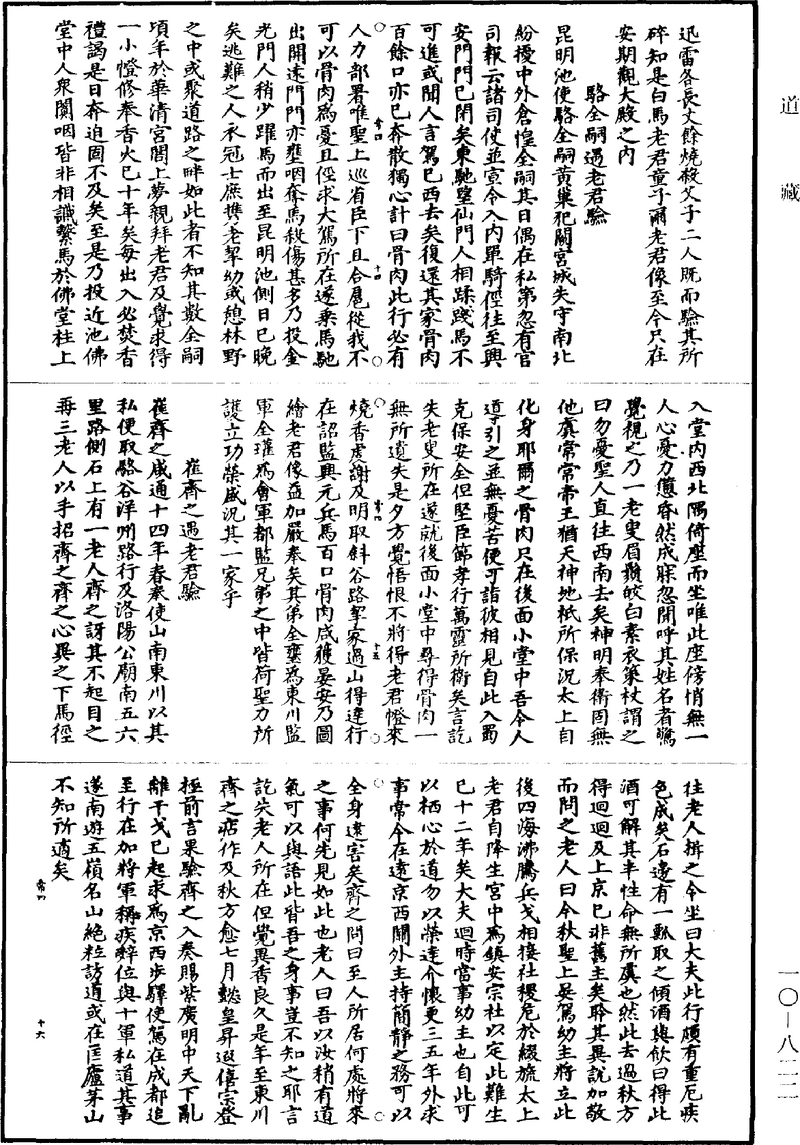 道藏
迅雷各長丈餘燒殺父子二人既而驗其所
碎知是白馬老君童子爾老君像至今只在
安期觀大殿之內
駱全嗣遇老君驗
昆明池使駱全嗣黃巢犯闕宮城失守南北
紛擾中外倉惶全嗣其日偶在私第忽有官
司報云諸司使並宣令入內單騎徑往至興
安門門已閉矣東馳望仙門人相蹂踐馬不
可進或聞人言駕已西去矣復還其家骨肉
百餘口亦已奔散獨心計曰骨肉此行必有
人力部署唯聖上巡省臣下且合扈從我不
可以骨肉為憂且徑求大駕所在遂乘馬馳
出開遠門門亦壅咽奪馬殺傷甚多乃投金
光門人稍少躍馬而出至昆明池側日已晚
矣逃難之人衣冠士庶携老挈幼或憩林野
之中或聚道路之畔如此者不知其數全嗣
頃年於華清宮閣上夢親拜老君及覺求得
一小㡧修奉香火已十年矣每出入必焚香
禮謁是日奔迫固不及矣至是乃投近池佛
堂中人衆闐咽皆非相識繫馬於佛堂柱上
入堂內西北隅倚座而坐唯此座傍悄無一
人心憂力憊昏然成寐忽聞呼其姓名者驚
覺視之乃一老叟眉鬚皎白素衣策杖謂之
曰勿憂聖人直往西南去矣神明奉衛固無
他虞常常帝王猶天神地祇所保況太上自
化身耶爾之骨肉只在後面小堂中吾令人
導引之並無憂苦便可詣彼相見自此入蜀
克保安全但堅臣節孝行萬靈所衛矣言訖
失老叟所在遂就後面小堂中尋得骨肉一
無所遺失是夕方覺悟恨不將得老君㡧來
燒香虔謝及明取斜谷路挈家過山得達行
在詔監興元兵馬百口骨肉咸獲晏安乃圖
繪老君像益加嚴奉矣其弟全瓘為東川監
軍全瓘為會軍都監兄弟之中皆荷聖力所
護立功榮盛況其一家乎
崔齊之遇老君驗
崔齊之咸通十四年春奉使山南東川以其
私便取駱谷洋州路行及洛陽公廟南五六
里路側石上有一老人齊之訝其不起目之
再三老人以手招齊之齊之心異之下馬徑
往老人揖之令坐曰大夫此行頗有重厄疾
色成矣石邊有一瓢取之傾酒與飲曰得此
酒可解其半性命無所虞也然此去過秋方
得迴迴及上京已非舊主矣聆其異說加敬
而問之老人曰今秋聖上晏駕幼主將立此
後四海沸騰兵戈相接社稷危於綴旒太上
老君自降生宮中為鎮安宗社以定此難生
已十二年矣大夫迴時當事幼主也自此可
以栖心於道勿以榮達介懷更三五年外求
事常令在遠京西關外主持簡靜之務可以
全身遠害矣齊之問曰至人所居何處將來
之事何先見如此也老人曰吾以汝稍有道
氣可以與語此皆吾之身事豈不知之耶言
訖失老人所在但覺異香良久是年至東川
齊之痁作及秋方愈七月懿皇昇遐僖宗登
極前言果驗齊之入奏賜紫廣明中天下亂
離干戈已起求為京西步驛使駕在成都追
至行在加將軍稱疾辭位與十軍私道其事
遂南遊五嶺名山絕粒訪道或在匡廬茅山
不知所適矣
常四 十四
常四 十五
常四 十六
一〇—八二二